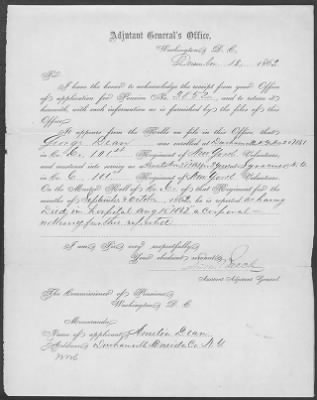 Adjutant General's Office,
Washington, D. C.
December 18, 1862
Sir:
I have the honor to acknowledge the receipt from your Office
of application for Pension No. and to return it
herewith, with such information as is furnished by the files of this
Office.
It appears from the Rolls on file in this Office, that
George Dean was enrolled at
in Co. E, 101st Regiment of New York Volunteers,
and mustered into service
in Co. E, 101st Regiment of New York Volunteers.
On the Muster Roll of Co. E, of that Regiment, for the
months of September & October, 1862, he is reported as having
Died in hospital Aug 15 1862 a Corporal
nothing further reported
I am, Sir, very respectfully,
Your obedient servant,
Assistant Adjutant General.
The Commissioner of Pensions,
Washington, D. C.
Memoranda:
Name of applicant, Dean
Address, Oneida Co. N.Y.